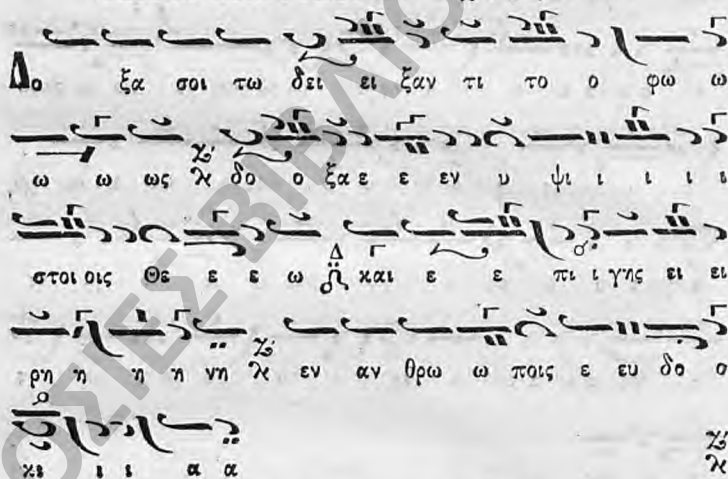 Δο ξα σοι τω δει ει ξαν τι το ο φω ω
ω ω ως δο ο ξα ε ε εν υ ψι ι ι ι ι
στοι οις Θε ε ε ω Δ και ε ε πι ι γης ει ει
ρη η η η νη εν αν θρω ω ποις ε ευ δο ο
κι ι ι α α